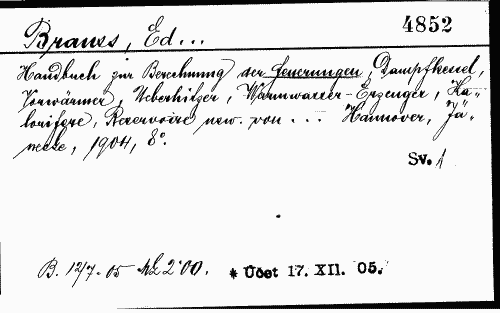 4852
Brauss, Ed...
Handbuch zur Berechnung der Feuerungen, Dampfkessel,
Vorwärmer, Ueberhitzer, Warmwasser-Erzeuger, Ka-
lorifere, Reservoire usw. von ... Hannover, Jä-
necke, 1904, 8°.
Sv. 1
B. 12/7. 05 M 2·00. * Účet 17. XII. 05.